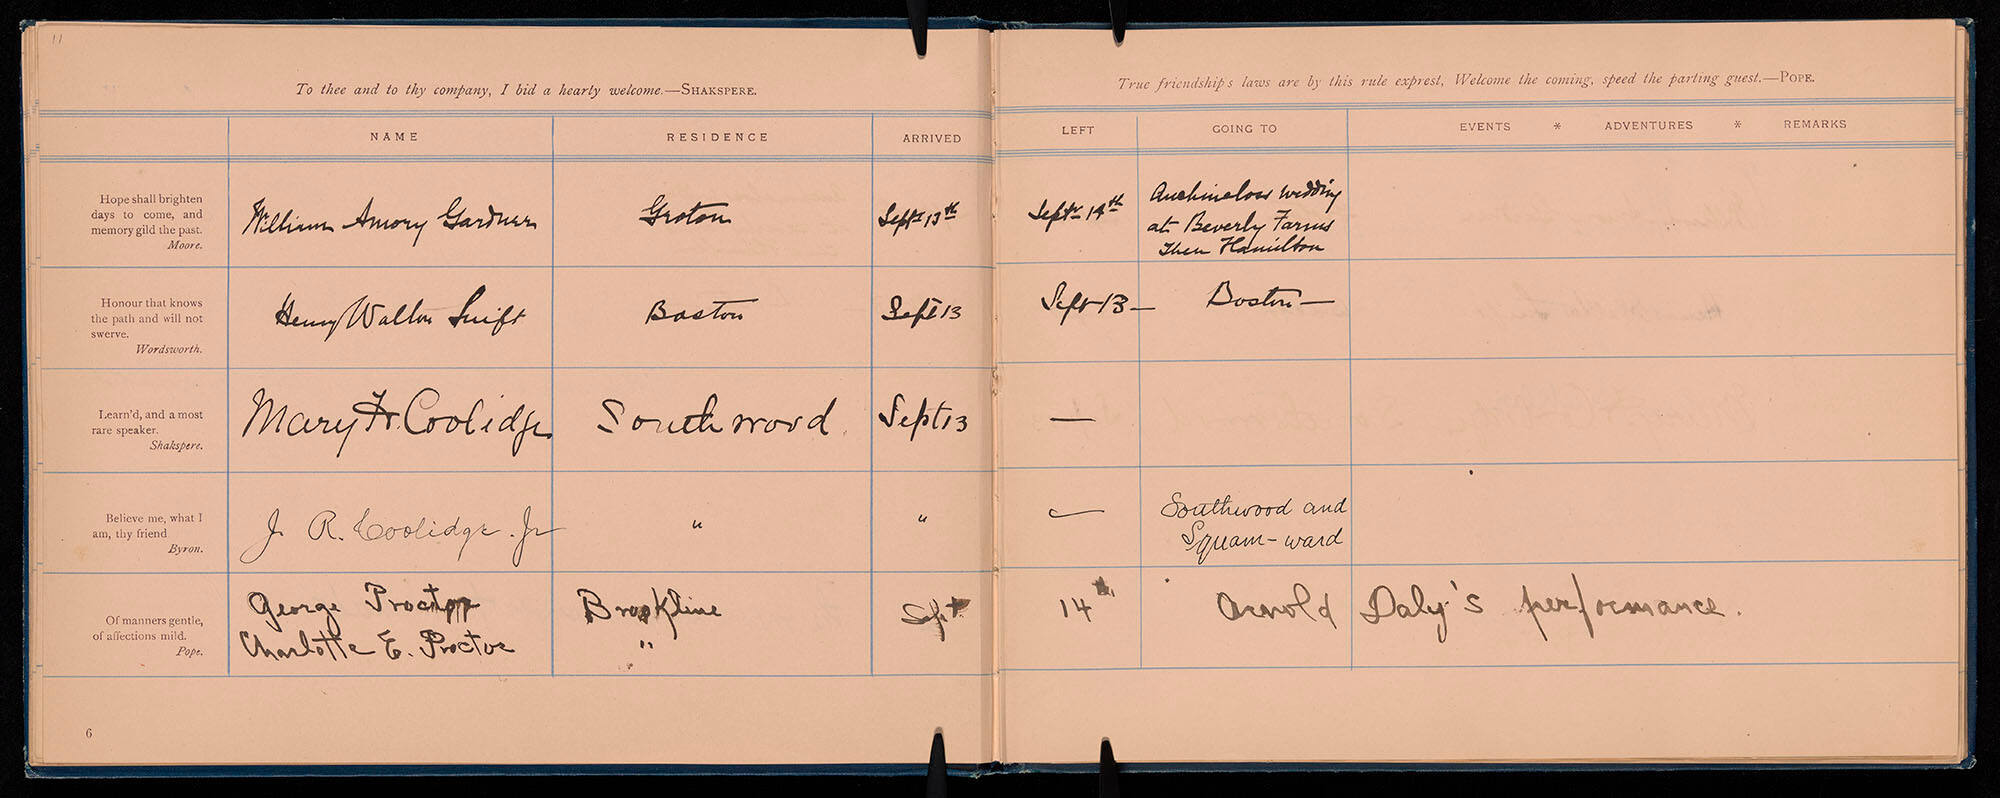 11
To thee and to thy company, I bid a hearty welcome.—SHAKSPERE.
True friendship's laws are by this rule exprest, Welcome the coming, speed the parting guest.—POPE.
NAME RESIDENCE ARRIVED LEFT GOING TO EVENTS * ADVENTURES * REMARKS
Hope shall brighten
days to come, and
memory gild the past.
Moore.
William Amory Gardner Groton Septr 13th Septr 14th
Auchincloss wedding
at Beverly Farms
then Hamilton
Honour that knows
the path and will not
swerve.
Wordsworth.
Henry Walton Swift Boston Sept 13 Sept 13— Boston—
Learn'd, and a most
rare speaker.
Shakspere.
Mary H. Coolidge Southwood. Sept 13 —
Believe me, what I
am, thy friend
Byron.
J. R. Coolidge. Jr " " —
Southwood and
Squam-ward
Of manners gentle,
of affections mild.
Pope.
George Proctor Brookline Sept 14th, Arnold Daly's performance.
Charlotte E. Proctor "
6